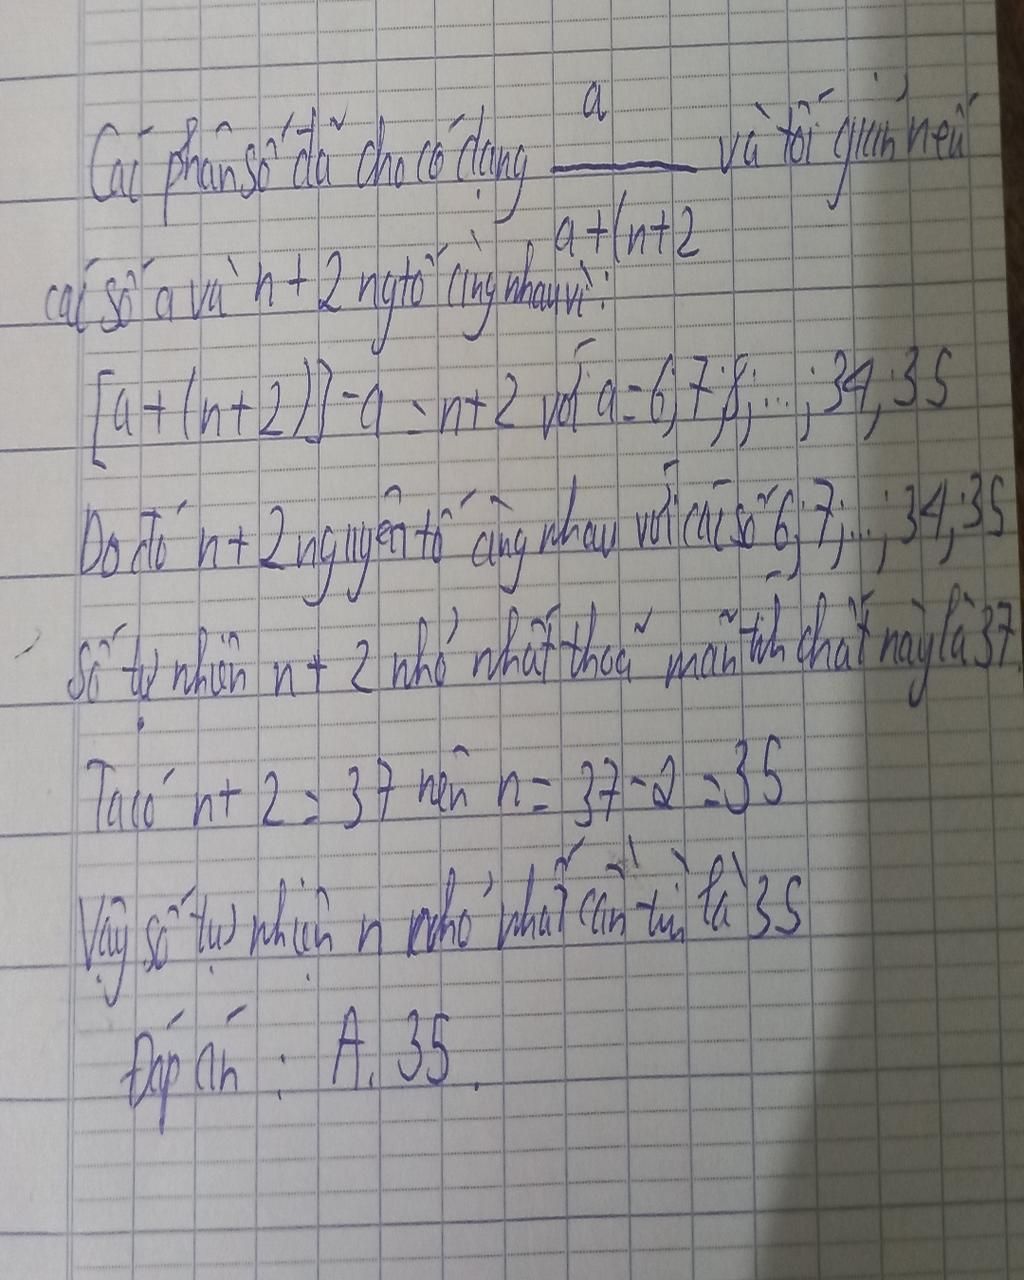 Các phân số đã cho có dạng a/a+(n+2 và tối giản nếu
các số a và n+2 ng tố cùng nhau vì:
[a+(n+2)]-a = n+2 với a=6;7;8;...;34;35
Do đó n+2 nguyên tố cùng nhau với các số 6;7;...;34;35
Số tự nhiên n+2 nhỏ nhất thoả mãn tính chất này là 37.
Ta có n+2=37 nên n=37-2=35
Vậy số tự nhiên n nhỏ nhất cần tìm là 35
Đáp án : A. 35.